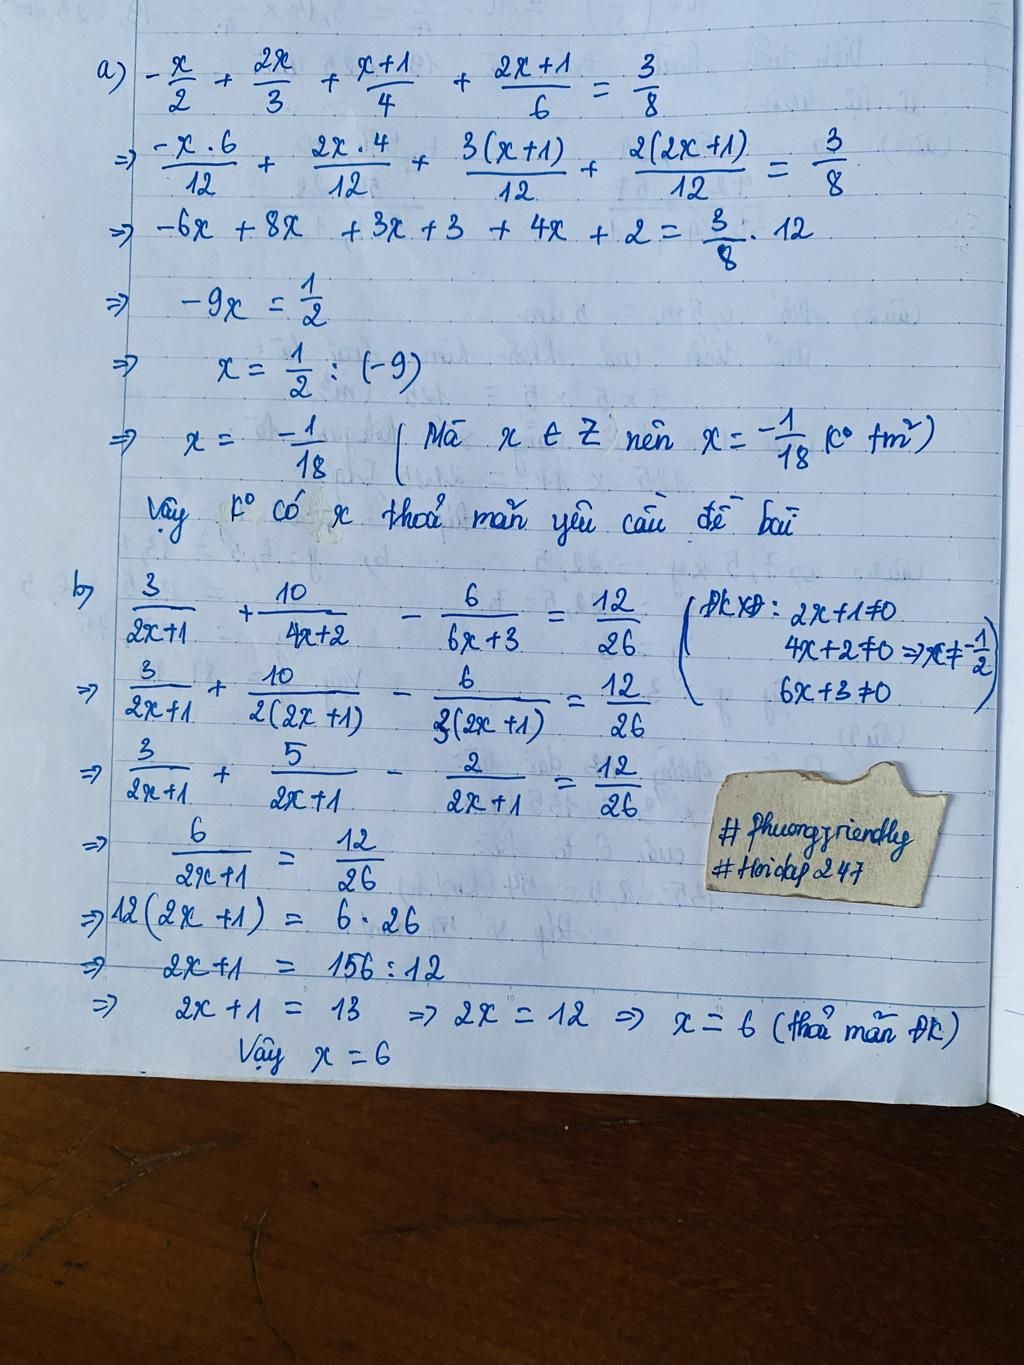 a) -x/2 + 2x/3 + x+1/4 + 2x+1/6 = 3/8
=> -x.6/12 + 2x.4/12 + 3(x+1)/12 + 2(2x+1)/12 = 3/8
=> -6x + 8x + 3x + 3 + 4x + 2 = 3/8 . 12
=> -9x = 1/2
=> x = 1/2 : (-9)
=> x = -1/18 (Mà x ∈ Z nên x = -1/18 (k° tm²)
Vậy k° có x thoả mãn yêu cầu đề bài
b) 3/2x+1 + 10/4x+2 - 6/6x+3 = 12/26 (ĐKXĐ: 2x+1≠0
4x+2≠0 => x≠-1/2
6x+3≠0)
=> 3/2x+1 + 10/2(2x+1) - 6/3(2x+1) = 12/26
=> 3/2x+1 + 5/2x+1 - 2/2x+1 = 12/26
=> 6/2x+1 = 12/26
=> 12(2x+1) = 6.26
=> 2x+1 = 156:12
=> 2x+1 = 13 => 2x = 12 => x = 6 (thoả mãn ĐK)
Vậy x = 6
# phuongfriendly
# Hoidap247